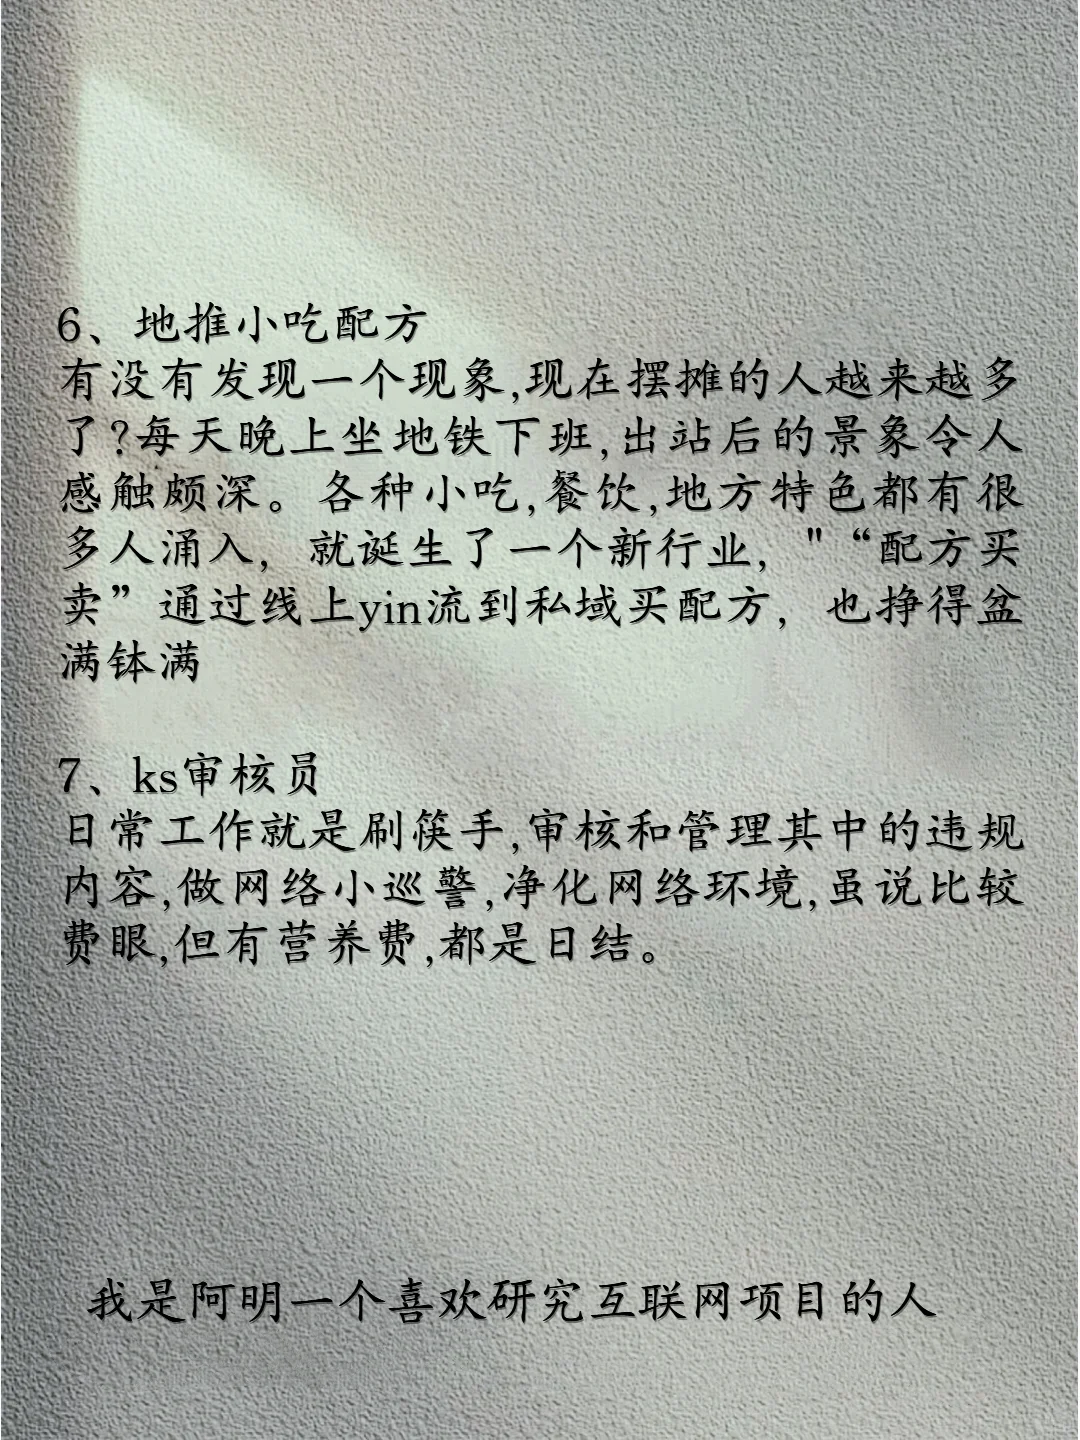 6、地推小吃配方
有没有发现一个现象,现在摆摊的人越来越多
了?每天晚上坐地铁下班,出站后的景象令人
感触颇深。各种小吃,餐饮,地方特色都有很
多人涌入，就诞生了一个新行业，"“配方买
卖”通过线上yin流到私域买配方，也挣得盆
满钵满
7、ks审核员
日常工作就是刷筷手,审核和管理其中的违规
内容,做网络小巡警,净化网络环境,虽说比较
费眼,但有营养费,都是日结。
我是阿明一个喜欢研究互联网项目的人